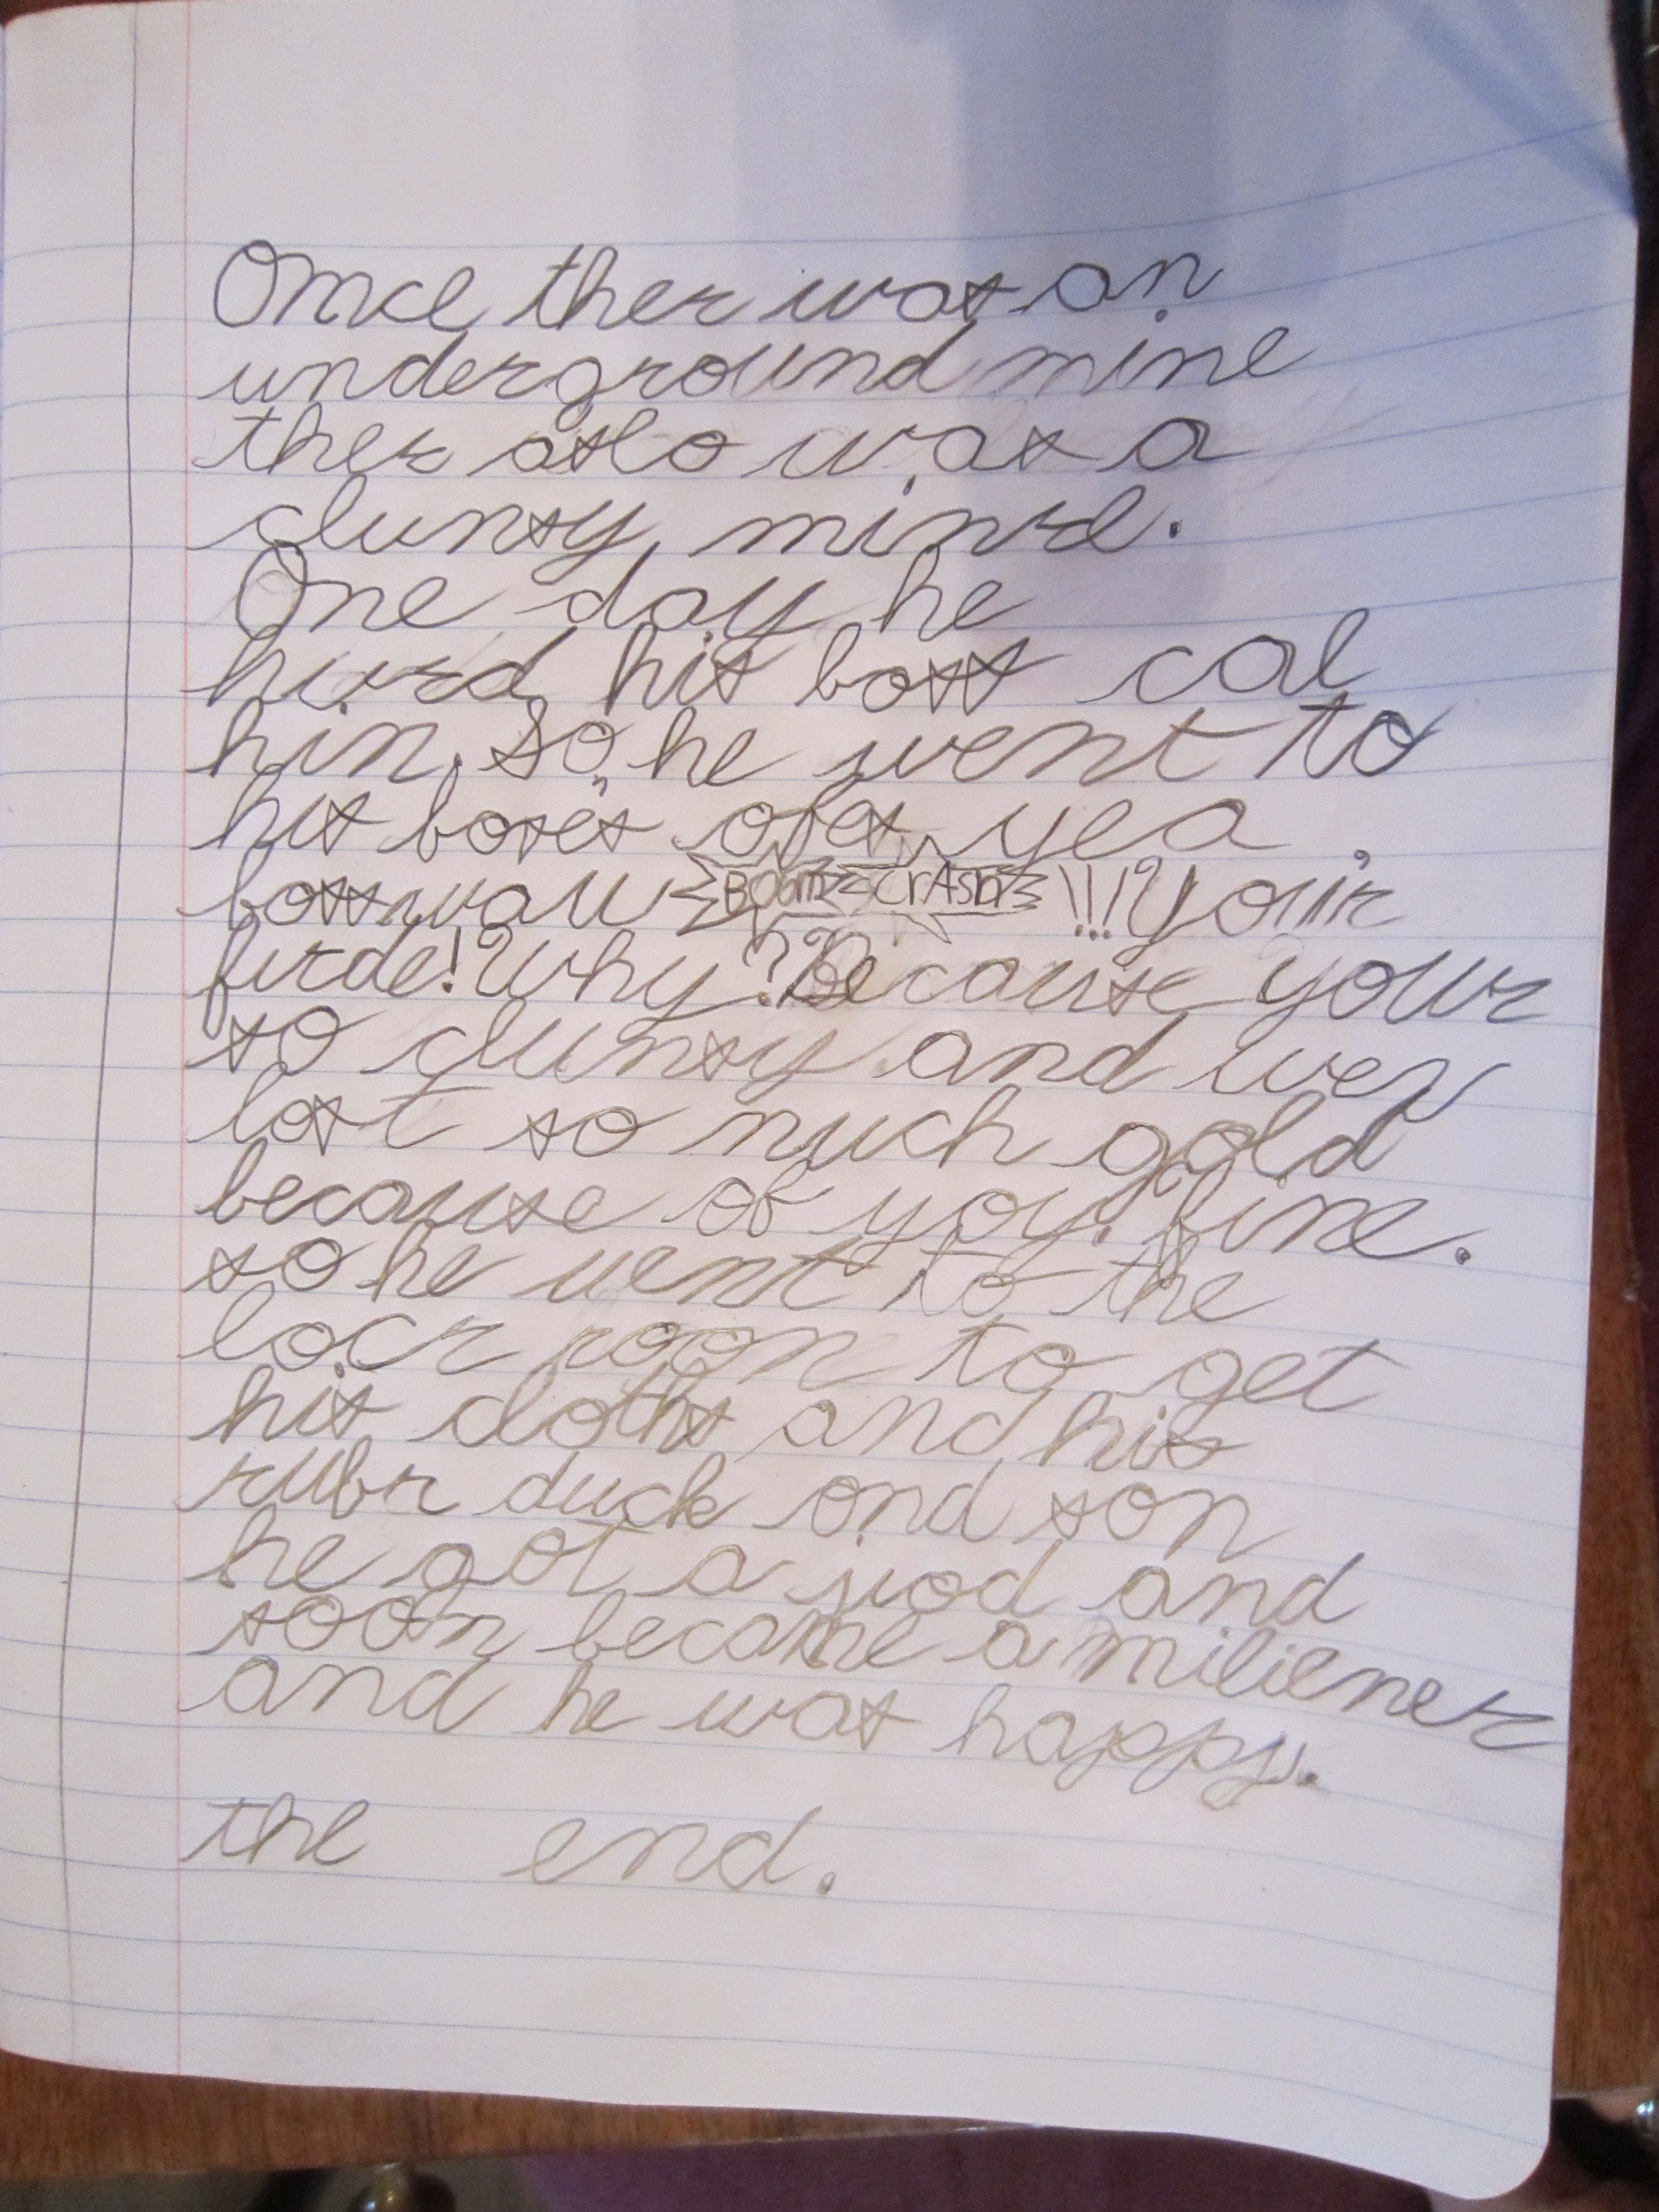 Once ther was an
underground mine
ther aslo was a
clunsy minre.
One day he
hurd his boss cal
hin. So he went to
his boses ofes, yea
boss waw BOOM CrAsh !!! Your
firde! Why? Because your
so clunsy and wev
lost so much gold
because of you. fine.
so he went to the
locr roon to get
his cloths and his
rubr duck and son
he got a jod and
soon became a miliener
and he was happy.
the end.